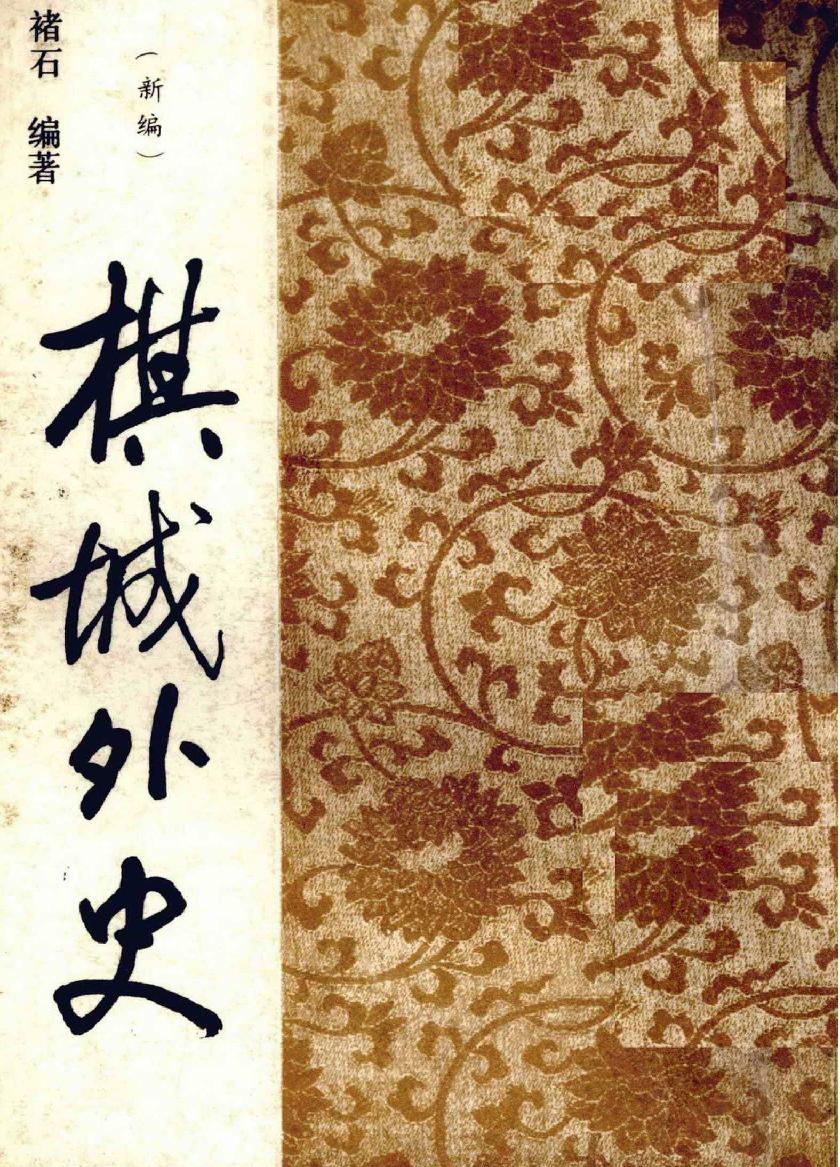 褚石 编著
（新编）
棋城外史